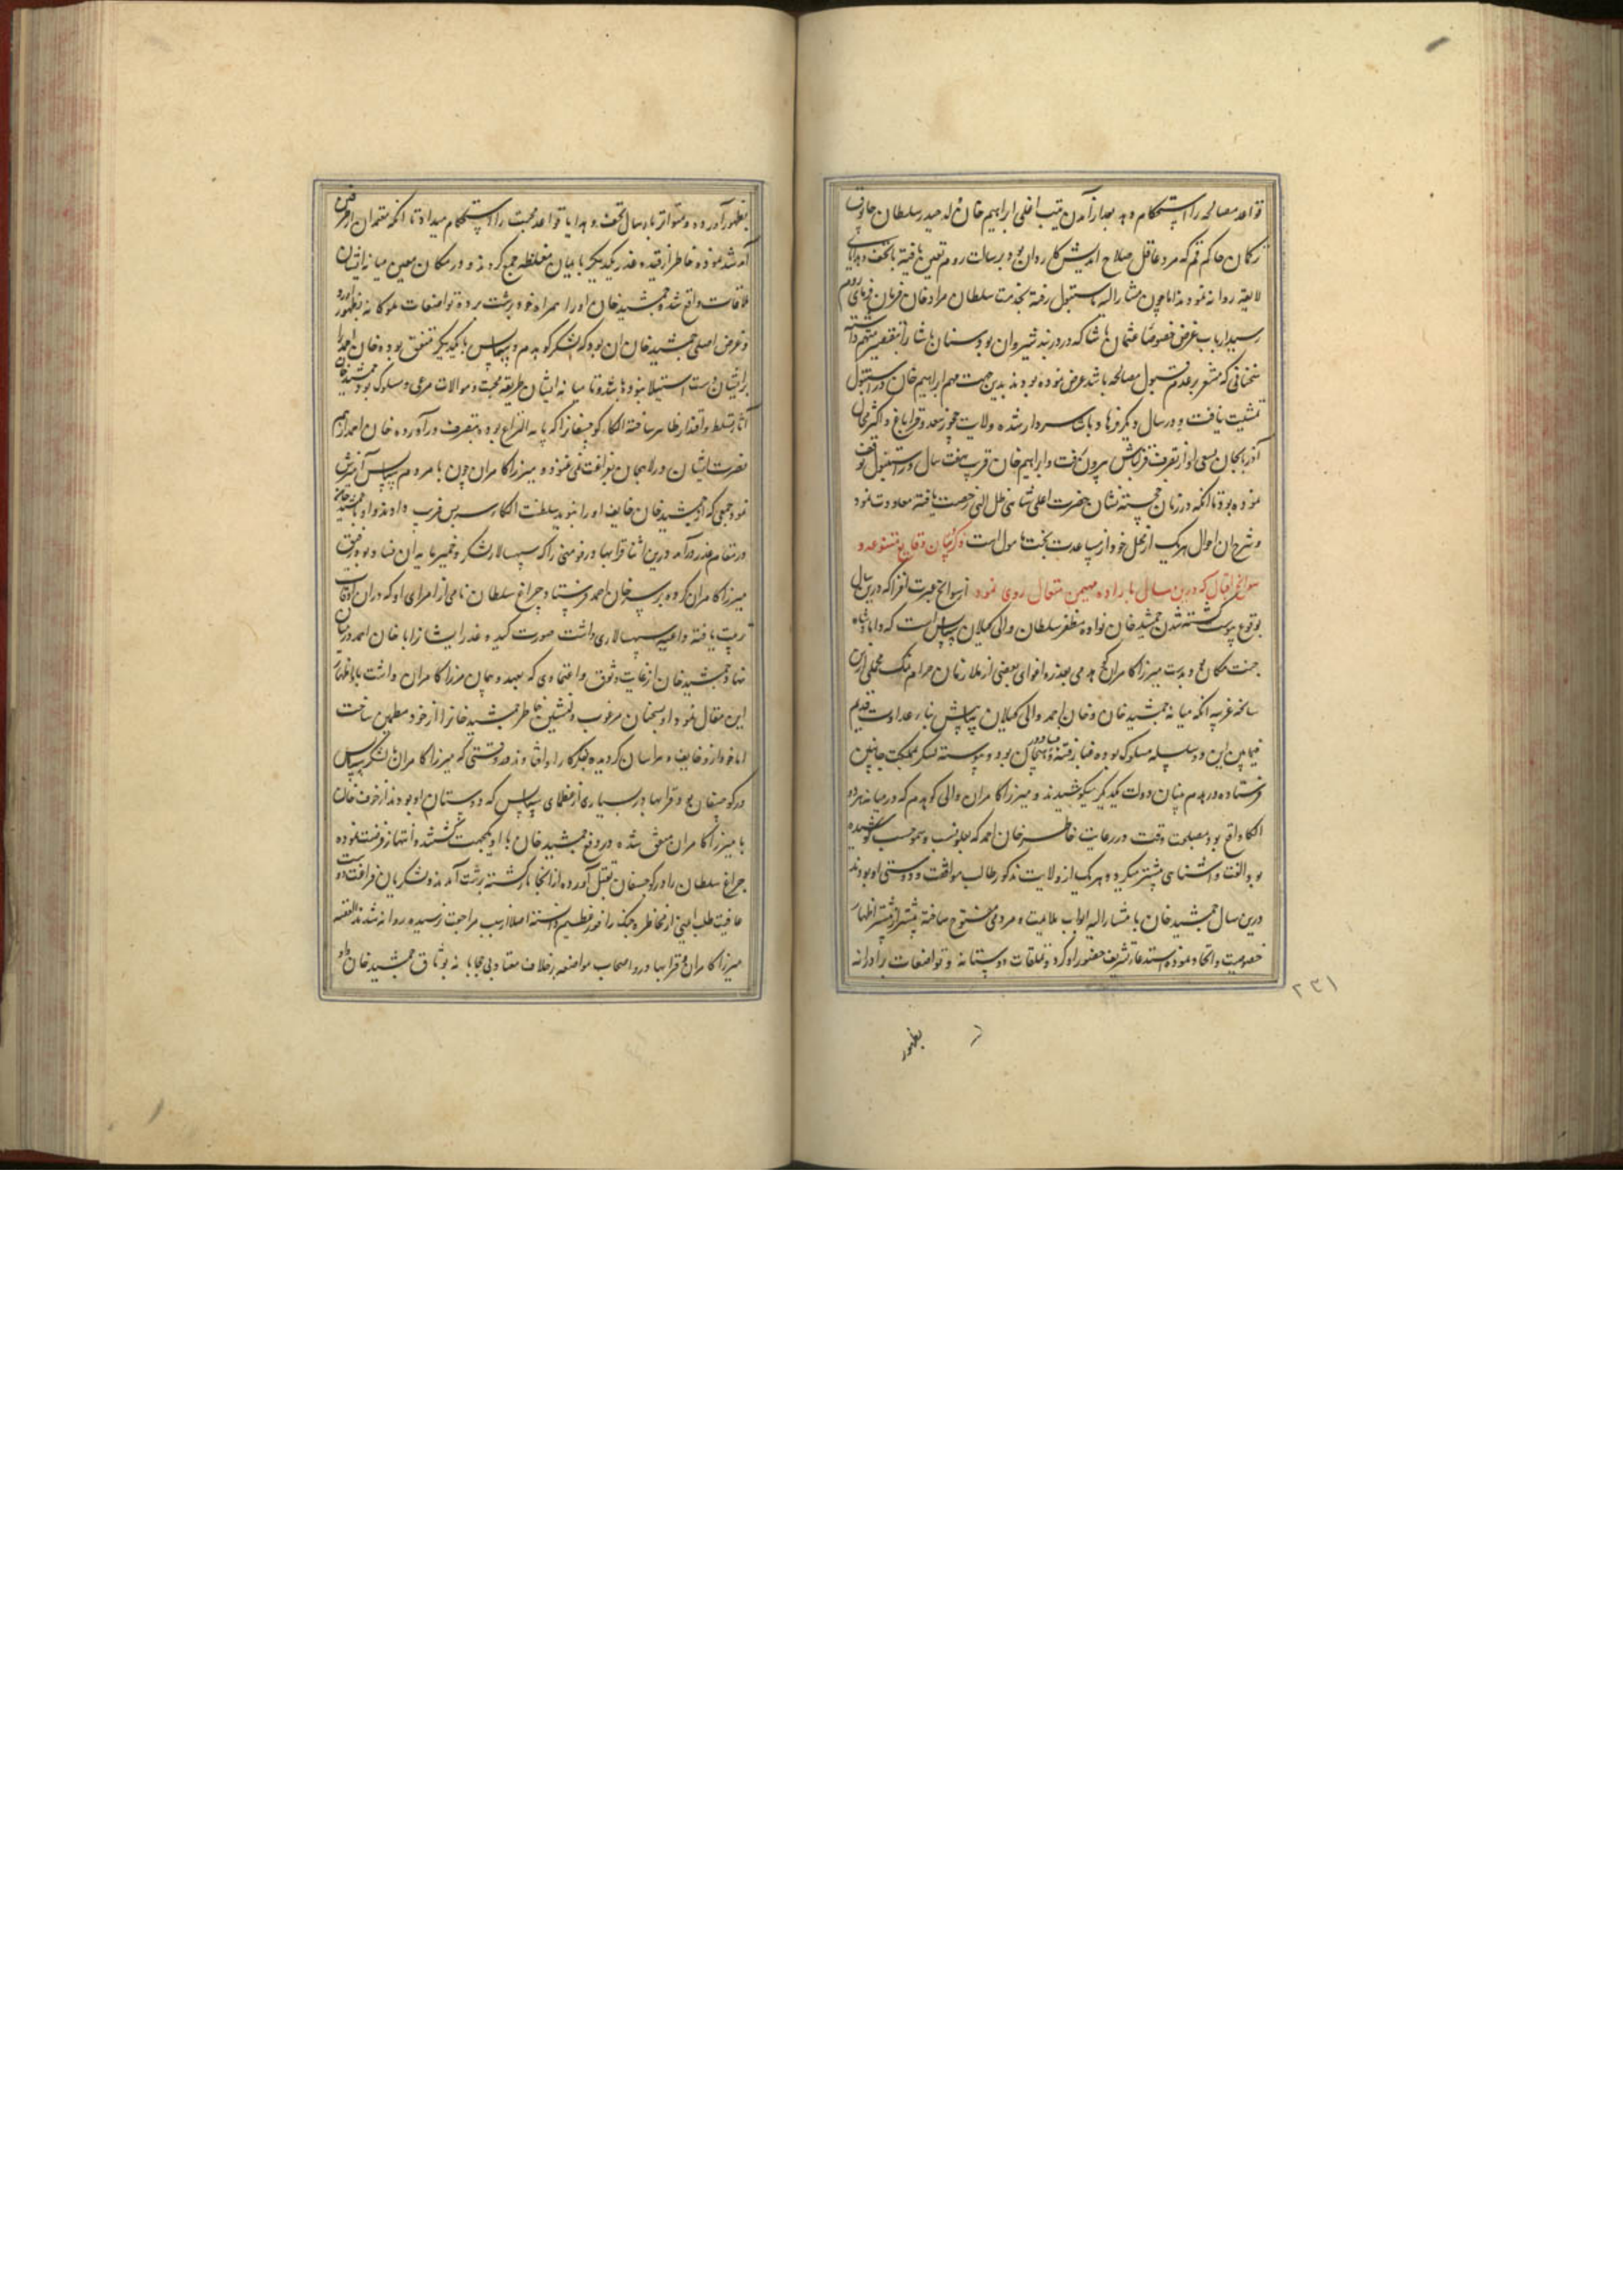 قواعد مصالحه را استحکام دهد بعد از آمدن ابراهیم خان ولد حیدر سلطان چاوق
ترکمان حاکم قم که مرد عاقل صلاح اندیش کاردان بود برسالت روم تعیین یافته با تحف و هدایای
لایقه روانه نمودند اما چون مشارالیه باستنبول رفته بخدمت سلطان مراد خان فرمان فرمای روم
رسید ارباب غرض خصوصا عثمان پاشا که در دربند شیروان بود سنان پاشا را بتقصیر متهم داشته
سخنانی که مشعر بر عدم قبول مصالحه باشد عرض نموده بودند بدین جهت مهم ابراهیم خان در استنبول
تمشیت نیافت و در سال دیگر فرهاد پاشا سردار شده ولایت چخور سعد و قراباغ و اکثر محال
آذربایجان بسعی او از تصرف قزلباش بیرون رفت و ابراهیم خان قریب هفت سال در استنبول توقف
نموده بود تا آنکه در زمان خجسته نشان حضرت اعلی شاهی ظل الهی رخصت یافته معاودت نمود
و شرح آن احوال هر یک از محل خود از مساعدت بخت مامول است ذکر بیان وقایع متنوعه و
سوانح اقبال که درین سال باراده مهیمن متعال روی نمود از سوانح عبرت افزا که درین سال
بوقوع پیوست کشته شدن جمشید خان نواده مظفر سلطان والی گیلان بیه پس است که داماد شاه
جنت مکان بود بدست میرزا کامران کهدمی بعذر و اغوای بعضی از ملازمان حرام نمک مجملی از این
سانحه غریبه آنکه میانه جمشید خان و خان احمد والی گیلان بیه پیش بنا بر عداوت قدیم
فیمابین این دو سلسله مسلوک بوده غبار فتنه در هیجان بود و پیوسته لشکر بمملکت جانبین
فرستاده در هدم بنیان دولت یکدیگر میکوشیدند و میرزا کامران والی کوهدم که در میانه هر دو
الکا واقع بود بمصلحت وقت در رعایت خاطر خان احمد که بعلو نسب و سمو حسب کوشیده
بود الفت و آشنایی بیشتر میکرد و هر یک از ولایت مذکور طالب موافقت و دوستی او بودند
درین سال جمشید خان با مشارالیه ابواب ملایمت و مردمی مفتوح ساخته بیشتر از پیشتر اظهار
خصوصیت و اتحاد نموده استدعای تشریف حضور او کرد و تلطفات دوستانه و تواضعات برادرانه
۲۳۱
بظهور
بظهور آورده و متواتر بارسال تحف و هدایا قواعد محبت را استحکام میداد تا آنکه معتمدان از طرفین
آمد شد نموده خاطر از قید غدر یکدیگر بایمان مغلظه جمع کردند و در مکان معین میانه ایشان
ملاقات واقع شده جمشید خان او را همراه خود برشت برده تواضعات ملوکانه بظهور آورد
و غرض اصلی جمشید خان آن بود که لشکر کوهدم و بیه پس با یکدیگر متفق بوده خان احمد را
بر ایشان دست استیلا نبوده باشد و تا میانه ایشان طریقه محبت و موالات مرعی و مسلوک بود جمشید خان
آثار تسلط و اقتدار ظاهر ساخته الکاء کوچصفهان را که بانتزاع بوده بتصرف درآورده خان احمد از بیم
مضرت ایشان در لاهیجان بفراغت نمی غنود میرزا کامران چون با مردم بیه پس آمیزش
نمود جمعی که از جمشید خان خایف او را بنوید سلطنت الکاء بیه پس فریب دادند و او با جمشید خان
در مقام غدر درآمد درین اثنا قرابهادر فومنی را که سپهسالار لشکر و خمیرمایه آن فساد بود رفیق
میرزا کامران کرده بر سر خان احمد فرستاد و چراغ سلطان نامی از امرای او که در آن اوقات
تربیت یافته داعیه سپهسالاری داشت صورت کید و غدر ایشان را با خان احمد در میان
نهاد جمشید خان از غایت وثوق و اعتمادی که بعهد و پیمان میرزا کامران داشت باو اظهار
این مقال نمود او بسخنان مرغوب دلنشین خاطر جمشید خان را از خود مطمئن ساخت
اما خود از وخایف و هراسان گردیده بفکر کار او افتاد در وقتی که میرزا کامران با لشکر بیه پس
در کوچصفهان بود قرابهادر بسیاری از عظمای بیه پس که دوستان او بودند از خوف خان
با میرزا کامران متفق شده در دفع جمشید خان با او یکجهت گشتند و انتهاز فرصت نموده
چراغ سلطان را در کوچصفهان بقتل آورده از آنجا بازگشته برشت آمدند و لشکریان فراغت دوست
عافیت طلب این از مخاطره جنگ را فوز عظیم دانسته اصلا از سبب مراجعت نپرسیده روانه شدند القصه
میرزا کامران و قرابهادر و اصحاب مواضعه بر خلاف معتاد بی محابانه بوثاق جمشید خان در